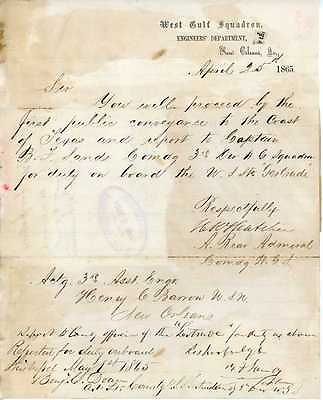 West Gulf Squadron,
ENGINEERS' DEPARTMENT,
New Orleans, La.
April 25th 1865
Sir
You will proceed by the
first public conveyance to the Coast
of Texas and report to Captain
B. F. Sands Comdg 3rd Div W G Squadron
for duty on board the U. S. Str Gertrude
Respectfully
H K Thatcher
A. Rear Admiral
Comdg W. G. S
Actg 3rd Asst Engr
Henry C Barron U S N
New Orleans
Report to Comg officer of the "Gertrude" for duty as above
Reported for duty onboard
May 1st 1865
Benj. C. Dean